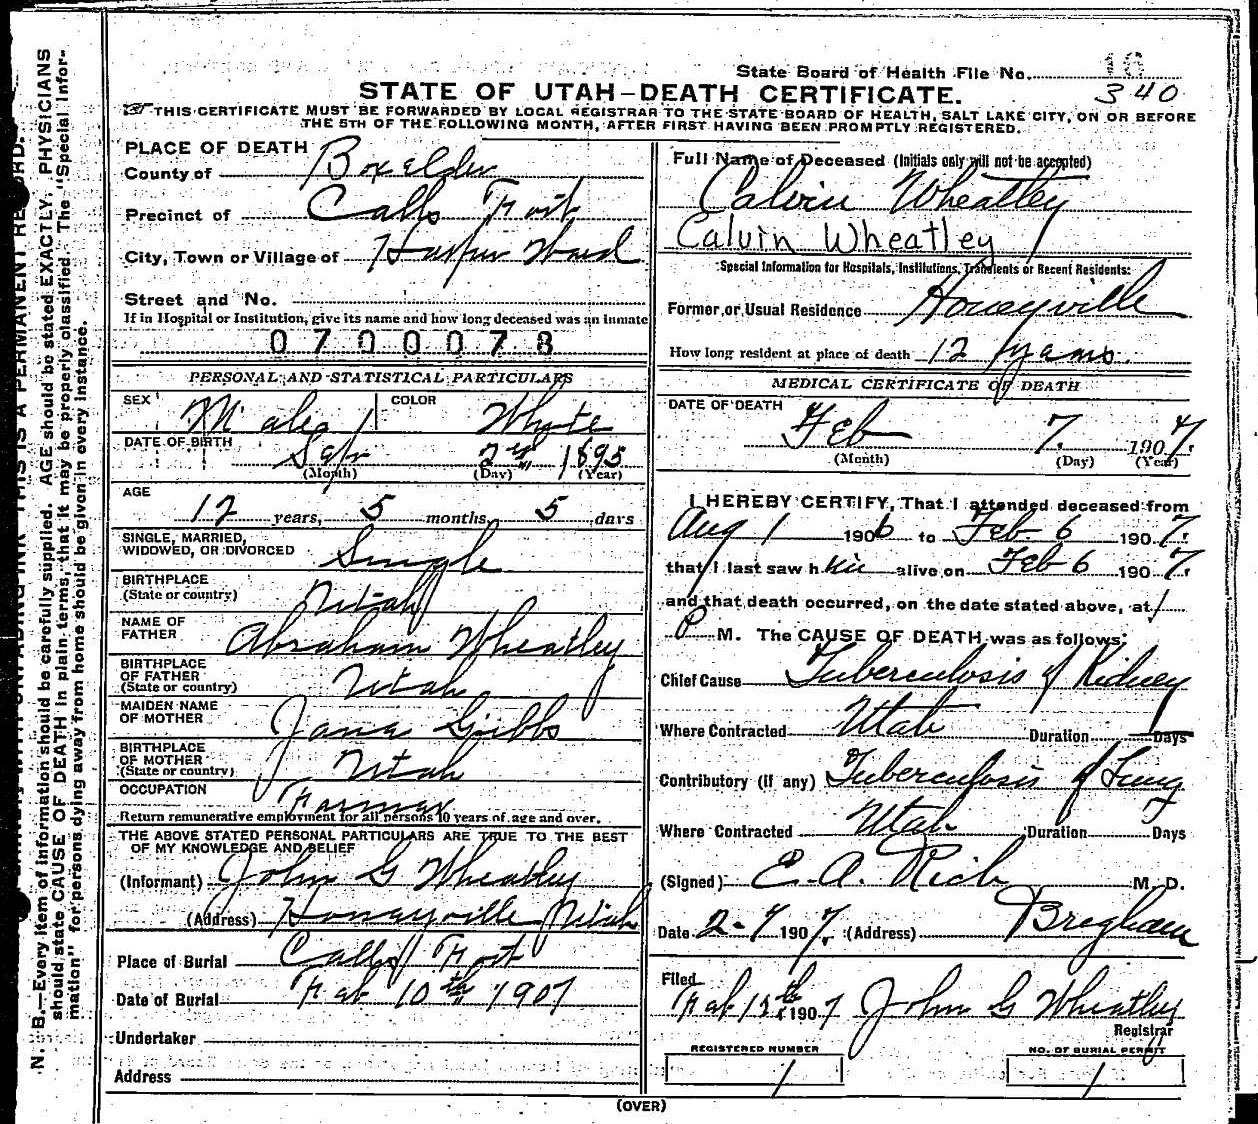 State Board of Health File No. 16
340
STATE OF UTAH–DEATH CERTIFICATE.
THIS CERTIFICATE MUST BE FORWARDED BY LOCAL REGISTRAR TO THE STATE BOARD OF HEALTH, SALT LAKE CITY, ON OR BEFORE
THE 5TH OF THE FOLLOWING MONTH, AFTER FIRST HAVING BEEN PROMPTLY REGISTERED.
PLACE OF DEATH
County of Boxelder
Precinct of Calls Fort
City, Town or Village of Harper Ward
Street and No.
If in Hospital or Institution, give its name and how long deceased was an inmate
0700078
PERSONAL AND STATISTICAL PARTICULARS
SEX Male COLOR Whyte
DATE OF BIRTH Sept 2nd 1895
(Month) (Day) (Year)
AGE
12 years, 5 months, 5 days
SINGLE, MARRIED,
WIDOWED, OR DIVORCED Single
BIRTHPLACE
(State or country) Utah
NAME OF
FATHER Abraham Wheatley
BIRTHPLACE
OF FATHER
(State or country) Utah
MAIDEN NAME
OF MOTHER Jana Gibbs
BIRTHPLACE
OF MOTHER
(State or country) Utah
OCCUPATION Farmer
Return remunerative employment for all persons 10 years of age and over.
THE ABOVE STATED PERSONAL PARTICULARS ARE TRUE TO THE BEST
OF MY KNOWLEDGE AND BELIEF
(Informant) John G Wheatley
(Address) Honeyville Utah
Place of Burial Calls Fort
Date of Burial Fab 10th 1907
Undertaker
Address
Full Name of Deceased (Initials only will not be accepted)
Calvin Wheatley
Calvin Wheatley
Special Information for Hospitals, Institutions, Transients or Recent Residents:
Former or Usual Residence Honeyville
How long resident at place of death 12 years
MEDICAL CERTIFICATE OF DEATH
DATE OF DEATH
Feb 7. 1907.
(Month) (Day) (Year)
I HEREBY CERTIFY, That I attended deceased from
Aug 1 1906 to Feb 6 1907.
that I last saw him alive on Feb 6 1907
and that death occurred, on the date stated above, at 1
P M. The CAUSE OF DEATH was as follows:
Chief Cause Tuberculosis of Kidney
Where Contracted Utah Duration Days
Contributory (if any) Tuberculosis of Lung
Where Contracted Utah Duration Days
(Signed) E. A. Rich M. D.
Date 2-7 1907. (Address) Bregham
Filed
Fab 1907 John G Wheatley
Registrar
REGISTERED NUMBER
1
NO. OF BURIAL PERMIT
1
(OVER)
N. B.—Every item of information should be carefully supplied. AGE should be stated EXACTLY. PHYSICIANS
should state CAUSE OF DEATH in plain terms, that it may be properly classified. The "Special Infor-
mation" for persons dying away from home should be given in every instance.
THIS IS A PERMANENT RECORD.